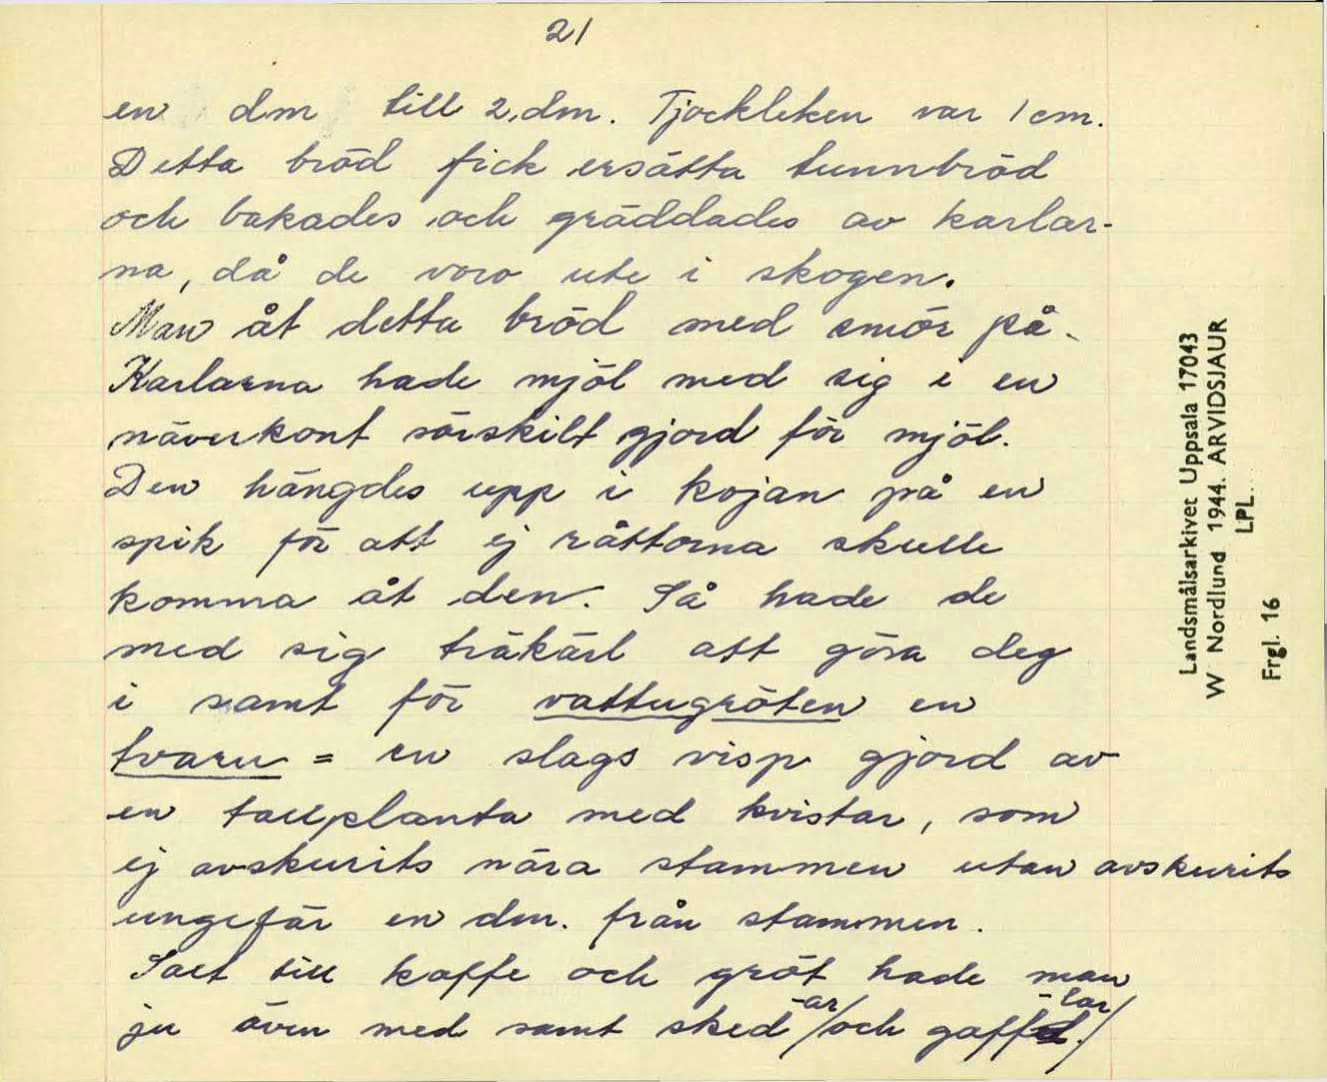 21
en dm till 2,dm. Tjockleken var 1 cm.
Detta bröd fick ersätta tunnbröd
och bakades och gräddades av karlar-
na, då de voro ute i skogen.
Man åt detta bröd med smör på.
Karlarna hade mjöl med sig i en
näverkont särskilt gjord för mjöl.
Den hängdes upp i kojan på en
spik för att ej råttorna skulle
komma åt den. Så hade de
med sig träkärl att göra deg
i samt för vattugröten en
tvaru = en slags visp gjord av
en tallplanta med kvistar, som
ej avskurits nära stammen utan avskurits
ungefär en dm. från stammen.
Salt till kaffe och gröt hade man
ju även med samt sked-ar/och gaff-lar/.
Landsmålsarkivet Uppsala 17043
W Nordlund 1944. ARVIDSJAUR
LPL.
Frgl. 16